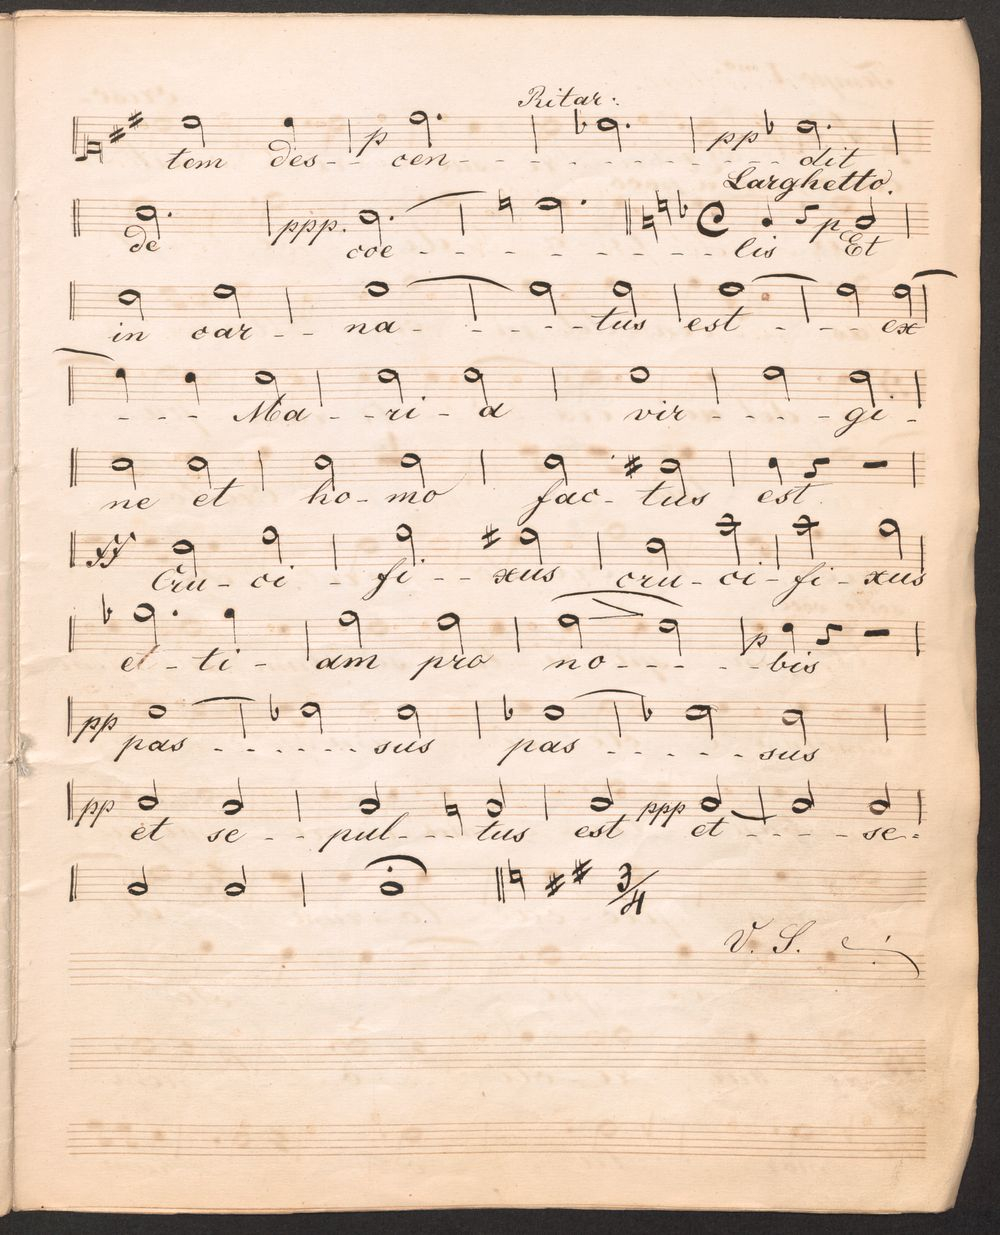 Ritar:
p pp
tem des - - cen - - - - - - - - - - - dit
Larghetto.
ppp. p
de coe - - - - - - - - lis Et
in car - - na - - - - - tus est - - - - ex
- - - Ma - - ri - a vir - - - - gi -
ne et ho - mo fac - tus est
ff
Cru - ci - fi - - xus cru - ci - fi - xus
p
et - ti - am pro no - - - - - bis
pp
pas - - - - - - sus pas - - - - - sus
pp ppp
et se - - pul - - - tus est et - - - - - se =
3/4
V. S.